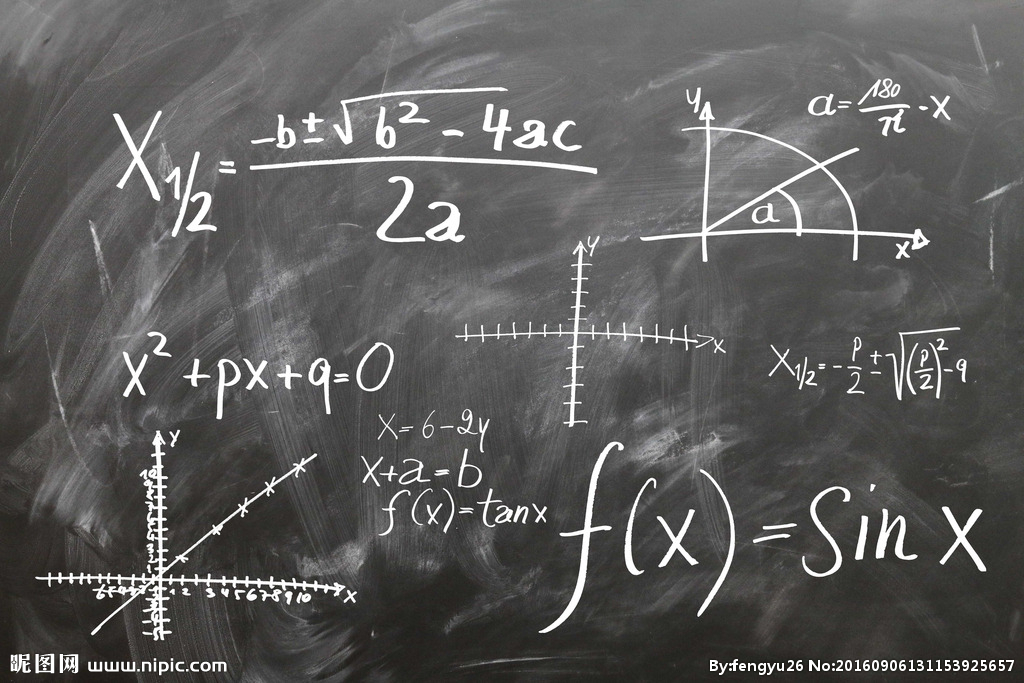 X1/2 = (-b ± √(b² - 4ac)) / 2a
y
a = 180/π · x
a
x
y
x
x² + px + q = 0
X1/2 = -p/2 ± √((p/2)² - q)
x = 6 - 2y
x + a = b
f(x) = tan x
f(x) = Sin x
y
10
1 2 3 4 5 6 7 8 9 10
x
昵图网 www.nipic.com
By:fengyu26 No:20160906131153925657